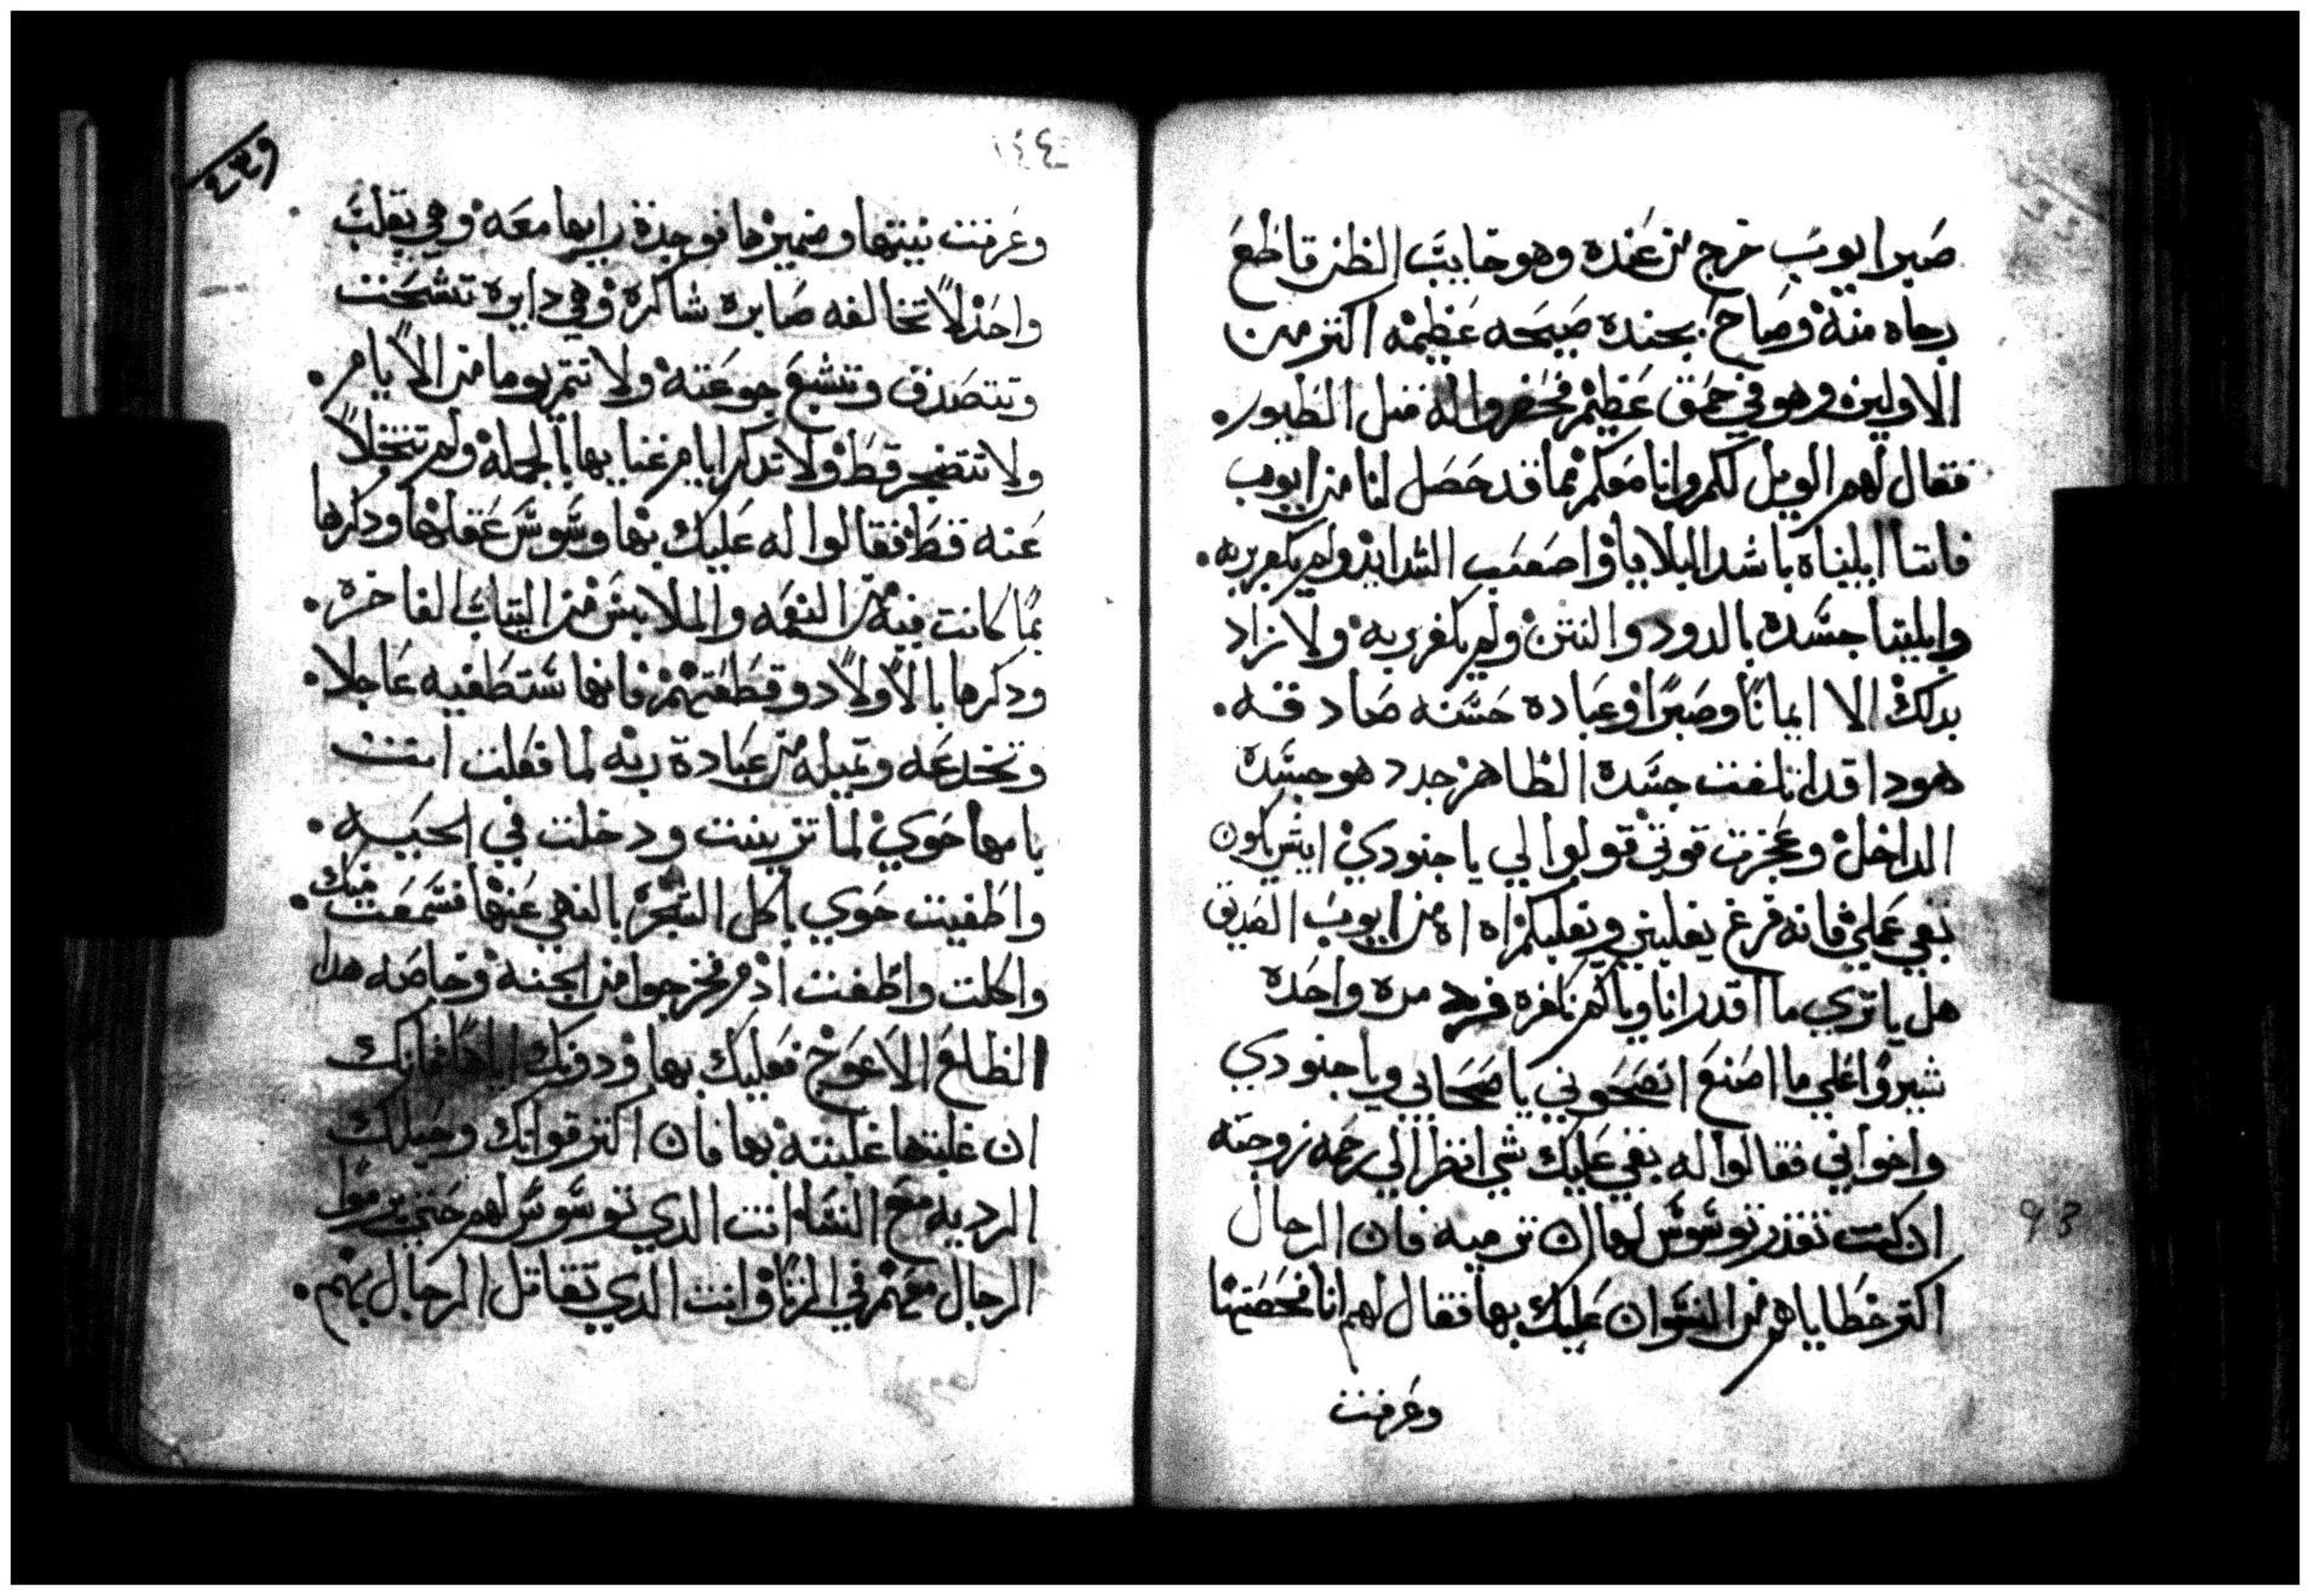 صبر ايوب خرج من عنده وهو خايب الظن قاطع
رجاه منه وصاح بجنده صيحه عظيمه اكتر من
الاولين وهو في حمق عظيم فحضروا له متل الطيور
فقال لهم الويل لكم وانا معكم فما قد حصل لنا من ايوب
فاننا ابليناه باشد البلايا واصعب الشدايد ولم يكفر بربه
وابلينا جسده بالدود والنتن ولم يكفر بربه ولا زاد
بدلك الا ايمانًا وصبرًا وعباده حسنه صادقه
هودا قد اتلفت جسده الظاهر جدد هو جسده
الداخل وعجزت قوتي قولوا لي يا جنودي ايش يكون
بقي عملي فانه فرغ يغلبني ويغلبكم اه اه من ايوب الصديق
هل يا تري ما اقدر انا وياكم نكفره فرد مره واحده
شيروا علي ما اصنع انصحوني يا صحابي ويا جنودي
واخواني فقالوا له بقي عليك شي انظر الي رحمه زوجته
ان كنت تقدر توسوس لها ان ترميه فان الرجال
اكتر خطاياهم من النسوان عليك بها فقال لهم انا فحصتها
وعرفت
١٤٤
وعرفت نيتها وضميرها فوجدة رايها معه وهي بقلب
واحد لا تخالفه صابره شاكرة وهي دايره تشحت
وتتصدق وتشبع جوعته ولا تتمر يوما من الايام
ولا تتضجر قط ولا تدكر ايام غنايها بالجمله ولم تتخلا
عنه قط فقالوا له عليك بها وسوس عقلها ودكرها
بما كانت فيه من النعمه والملابس من التياب الفاخره
ودكرها بالاولاد وقطعتهم فانها ستطغيه عاجلا
وتخدعه وتميله من عبادة ربه لما فعلت انت
بامها حوي لما تزينت ودخلت في الحيه
واطغيت حوي باكل الشجر بالنهي عنها فسمعت منك
واكلت واطغت ادم فخرجوا من الجنه وخاصه هدا
الظلع الاعوج فعليك بها ودونك اياها فانك
ان غلبتها غلبته بها فان اكتر قواتك وحيلك
الرديه مع النسا انت الدي توسوس لهم حتي يرموا
الرجال معهم في الزنا وانت الدي تقاتل الرجال بهم
93